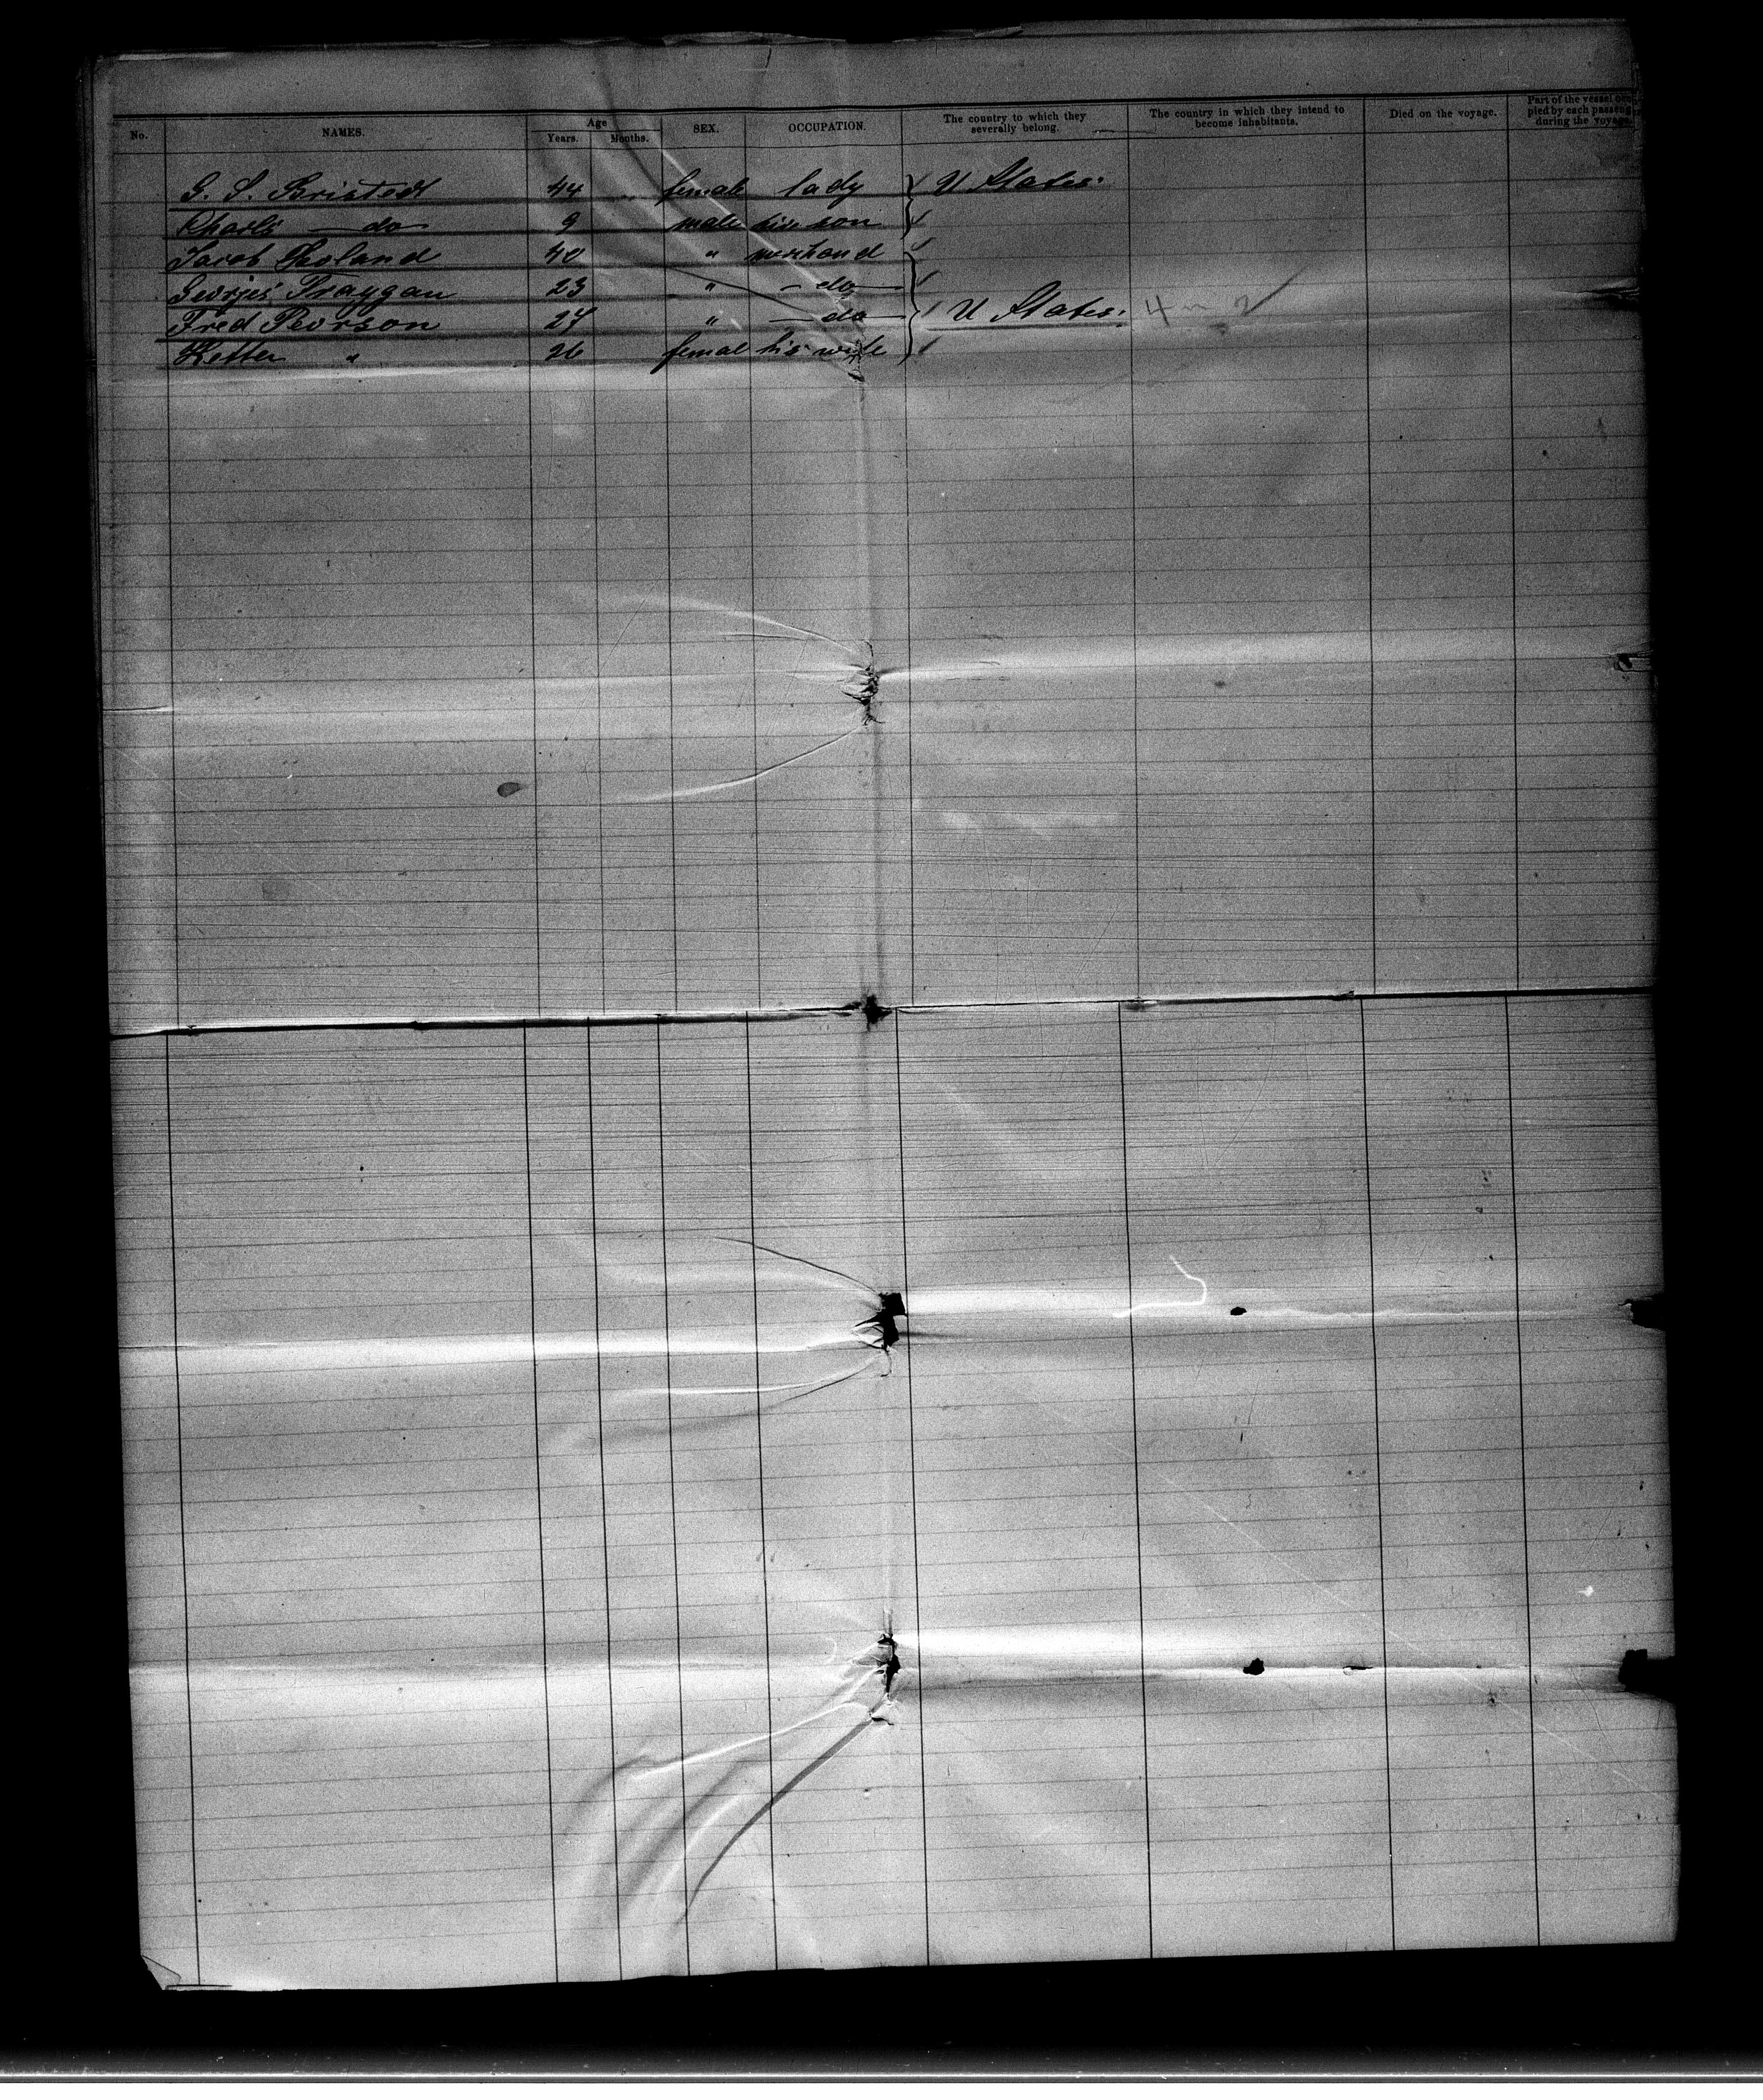 No. NAMES. Age Years. Months. SEX. OCCUPATION. The country to which they severally belong. The country in which they intend to become inhabitants. Died on the voyage. Part of the vessel occupied by each passenger during the voyage.
G. S. Bristedt 44 " female lady U States.
Charls — do — 9 male his son
Jacob 40 " merchand
Georges Traygan 23 " — do —
Fred Peorson 27 " — do — U States. 4 m 2
" 26 femal his wife